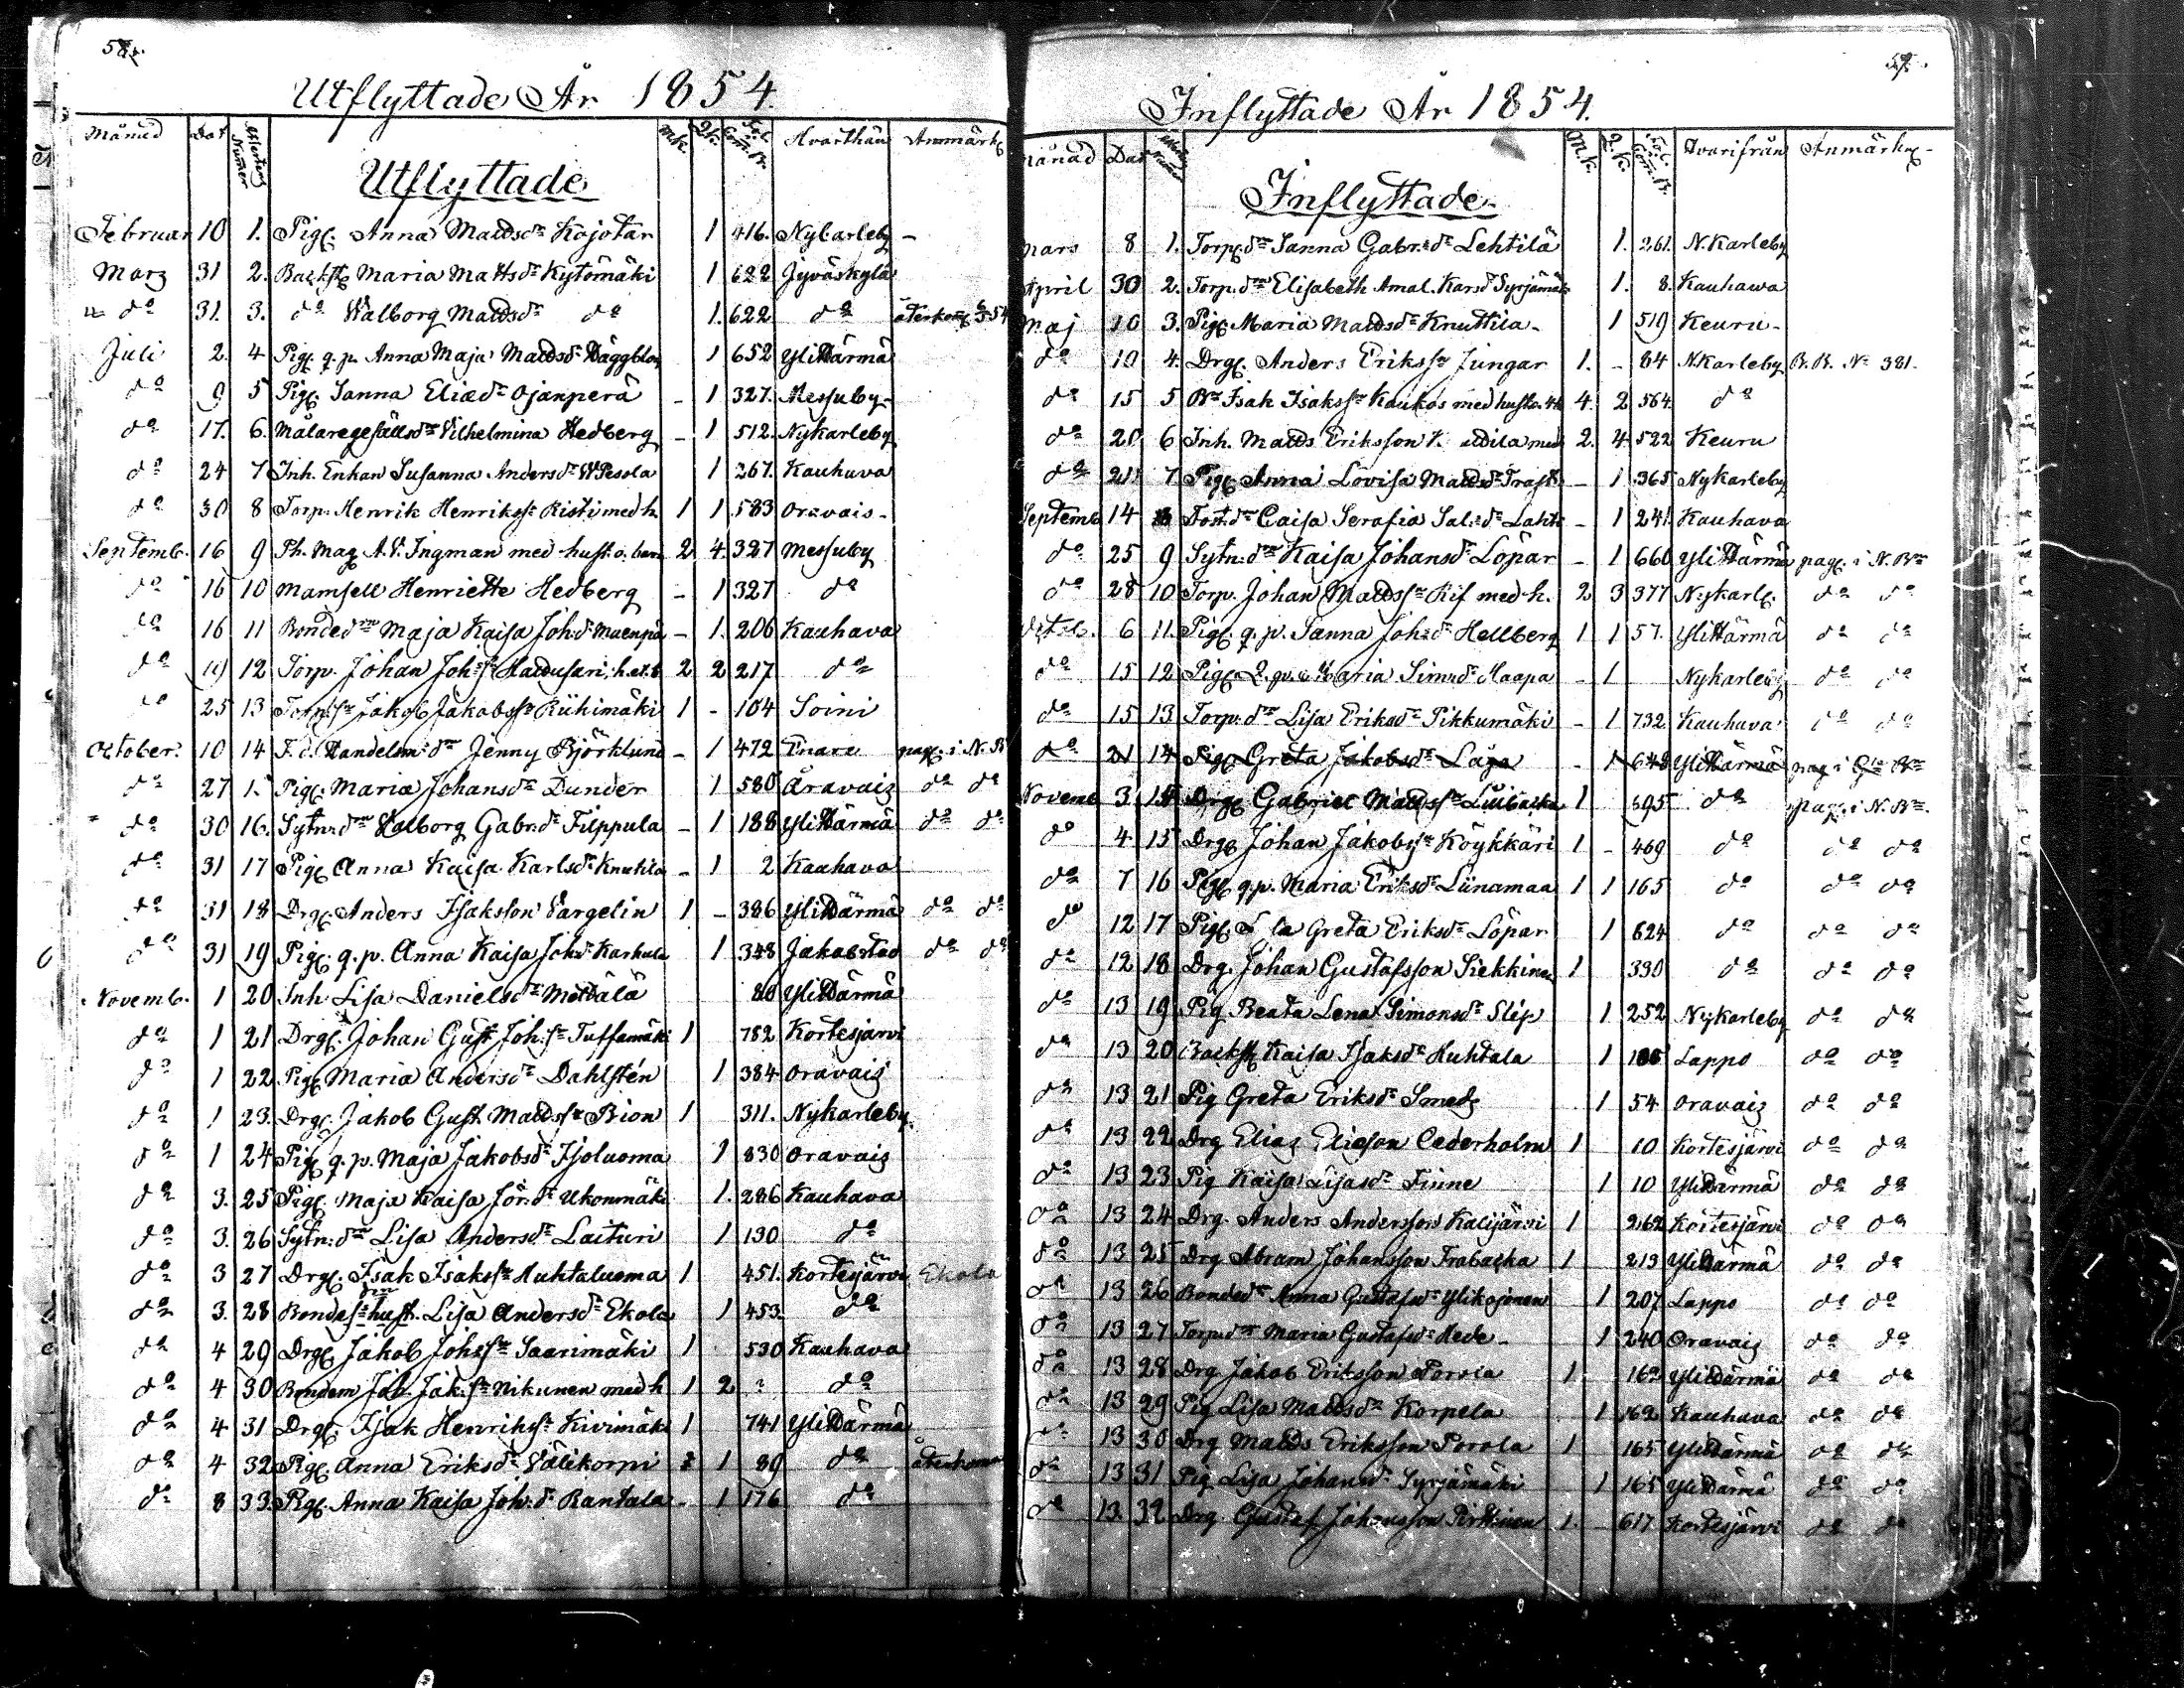 58.
Utflyttade År 1854.
Månad Dat Attesterng Numer M.k. Q.k. Fol. Com. B. Hvarthän Anmärkg
Utflyttade
Februar 10 1. Pigę. Anna Mattsdr Kojotar 1 416. Nykarleby –
Mars 31 2. Backstg Maria Mattsdr Kytömäki 1 622 Jyväskylä
do 31. 3. do Walborg Mattsdr do 1. 622 do återkom 54
Juli 2. 4 Pig. q. p. Anna Maja Mattsdr Häggblom 1 652 YliHärmä
do 9 5 Pig. Sanna Eliædr Ojanperä – 1 327. Messuby –
do 17. 6. Målaregesällsdr Vilhelmina Hedberg – 1 512. Nykarleby
do 24 7 Inh. Enkan Susanna Andersdr WPesola 1 267. Kauhava
do 30 8 Torp. Henrik Henrikss. Risti med h. 1 1 583 Oravais –
Septemb. 16 9 Ph. Mag. A. V. Ingman med hust. o. barn 2 4. 327 Messuby
do 16 10 Mamsell Henriette Hedberg – 1 327 do
do 16 11 Bondedr Maja Kaisa Joh.dr Maenpä – 1. 206 Kauhava
do 19 12 Torp. Johan Joh.s. Hattusari, h. et. b 2 2 217 do
do 25 13 Torp.s. Jakob Jakobss. Riihimäki 1 – 104 Soini
October. 10 14 F. d. Handelsm.dr Jenny Björklund – 1 472 Enare pag. i N. B
do 27 15 Pig. Maria Johansdr Dunder 1 580 Åravais do do
do 30 16. Sytn:dr Walborg Gabr.dr Filppula – 1 188 YliHärmä do do
do 31 17 Pig. Anna Kaisa Karlsdr Knutila – 1 2 Kauhava
do 31 18 Drg. Anders Isaksson Wargelin 1 – 386 YliHärmä do do
do 31 19 Pig. q. p. Anna Kaisa Johdr Karhula 1 348 Jakobstad do do
Novemb. 1 20 Inh Lisa Danielsdr Mottälä 80 YliHärmä
do 1 21 Drg. Johan Gust Joh.s. Tuffamäki 1 782 Kortesjärvi
do 1 22 Pig. Maria Andersdr Dahlstén 1 384 Oravais
do 1 23. Drg. Jakob Gust. Mattss. Bion 1 311. Nykarleby.
do 1 24 Pig. q. p. Maja Jakobsdr Isoluoma 1 830 Oravais
do 3. 25 Pig. Maja Kaisa Jör.dr Ukonmäki 1. 286 Kauhava
do 3. 26 Sytn:dr Lisa Andersdr Laituri 1 130 do
do 3 27 Drg. Isak Isakss. Huhtaluoma 1 451. Kortesjärvi Ekola
do 3. 28 Bondes hust. Lisa Andersdr Ekola 1 453 do
do 4 29 Drg. Jakob Johss. Saarimäki 1 530 Kauhava
do 4 30 Bondem Joh. Jak.s. Nikunen med h 1 2 ? do
do 4 31 Drg. Isak Henrikss. Kivimäki 1 741 YliHärmä
do 4 32 Pig. Anna Eriksdr Välikorpi 1 80 do
do 8 33. Pig. Anna Kaisa Joh.dr Rantala – 1 176 do
59.
Inflyttade År 1854.
Månad Dat M.k. Q.k. Fol. Com. B. Hvarifrån Anmärkng –
Inflyttade
Mars 8 1. Torp.dr Sanna Gabr.dr Lehtilä 1. 261. N. Karleby
April 30 2. Torp.dr Elisabeth Amal. Karsdr Syrjämäki 1. 8. Kauhawa
Maj 10 3. Pig. Maria Mattsdr Knuttila – 1 519 Keuru –
do 10 4. Drg. Anders Erikss. Jungar 1. – 84 N.Karleby B. B. No 381.
do 15 5 Isak Isakss. Kaukos med hustr. 4. 2 564. do
do 20 6 Inh. Matts Eriksson med 2. 4. 522 Keuru
do 21 7 Pig. Anna Lovisa Mattsdr Trast – 1 365 Nykarleby
Septemb 14 8 Torp.dr Caisa Serafia Sal.dr Lahti – 1 241. Kauhava
do 25 9 Sytn:dr Kaisa Johansdr Löpar – 1 660 YliHärmä pag. i N. Bn
do 28 10 Torp. Johan Mattss. Kif med h. 2 3 377 Nykarl. do do
Octob. 6 11. Pig. q. p. Sanna Johdr Hellberg 1 1 57. YliHärmä do do
do 15 12 Pig. Maria Sim.dr Haapa – 1 Nykarleby do do
do 15 13 Torp.dr Lisa Eriksdr Pikkumäki – 1 732 Kauhava do do
do 21 14 Pig. Greta Jakobsdr Låga – 1 648 YliHärmä pag i
Novemb 3 14 Drg. Gabriel Mattss. Luibacka 1 695 do pag. i N. Bn.
do 4 15 Drg. Johan Jakobss. Köykkäri 1 – 469 do do do
do 7 16 Pig. q. p. Maria Eriksdr Liinamaa 1 1 165 do do do
do 12 17 Pig. Greta Eriksdr Löpar 1 624 do do do
do 12 18 Drg. Johan Gustafsson Siekkinen 1 330 do do do
do 13 19 Pig Beata Lena Simonsdr Slip 1 252 Nykarleby do do
do 13 20 Backst. Kaisa Isaksdr Huhtala 1 Lappo do do
do 13 21 Pig Greta Eriksdr Smeds 1 54 Oravais do do
do 13 22 Drg Elias Eliasson Cederholm 1 10 Kortesjärvi do do
do 13 23 Pig Kaisa Lisasdr Finne 1 10 YliHärmä do do
do 13 24 Drg. Anders Andersson Kalijärvi 1 262 Kortesjärvi do do
do 13 25 Drg Abram Johansson Frabacka 1 213 YliHärmä do do
do 13 26 Bondedr Anna Gustafsdr Ylikojonen 1 207 Lappo do do
do 13 27 Torp.dr Maria Gustafsdr Hede – 1 240 Oravais do do
do 13 28 Drg Jakob Eriksson Porola 1. 162 YliHärmä do do
do 13 29 Pig Lisa Mattsdr Korpela 1 162 Kauhava do do
do 13 30 Drg Matts Eriksson Porola 1 165 YliHärmä do do
do 13 31 Pig Lisa Johansdr Syrjämäki 1 165 YliHärmä do do
do 13. 32 Drg Gustaf Johansson Pirttinen 1. 617 Kortesjärvi do do